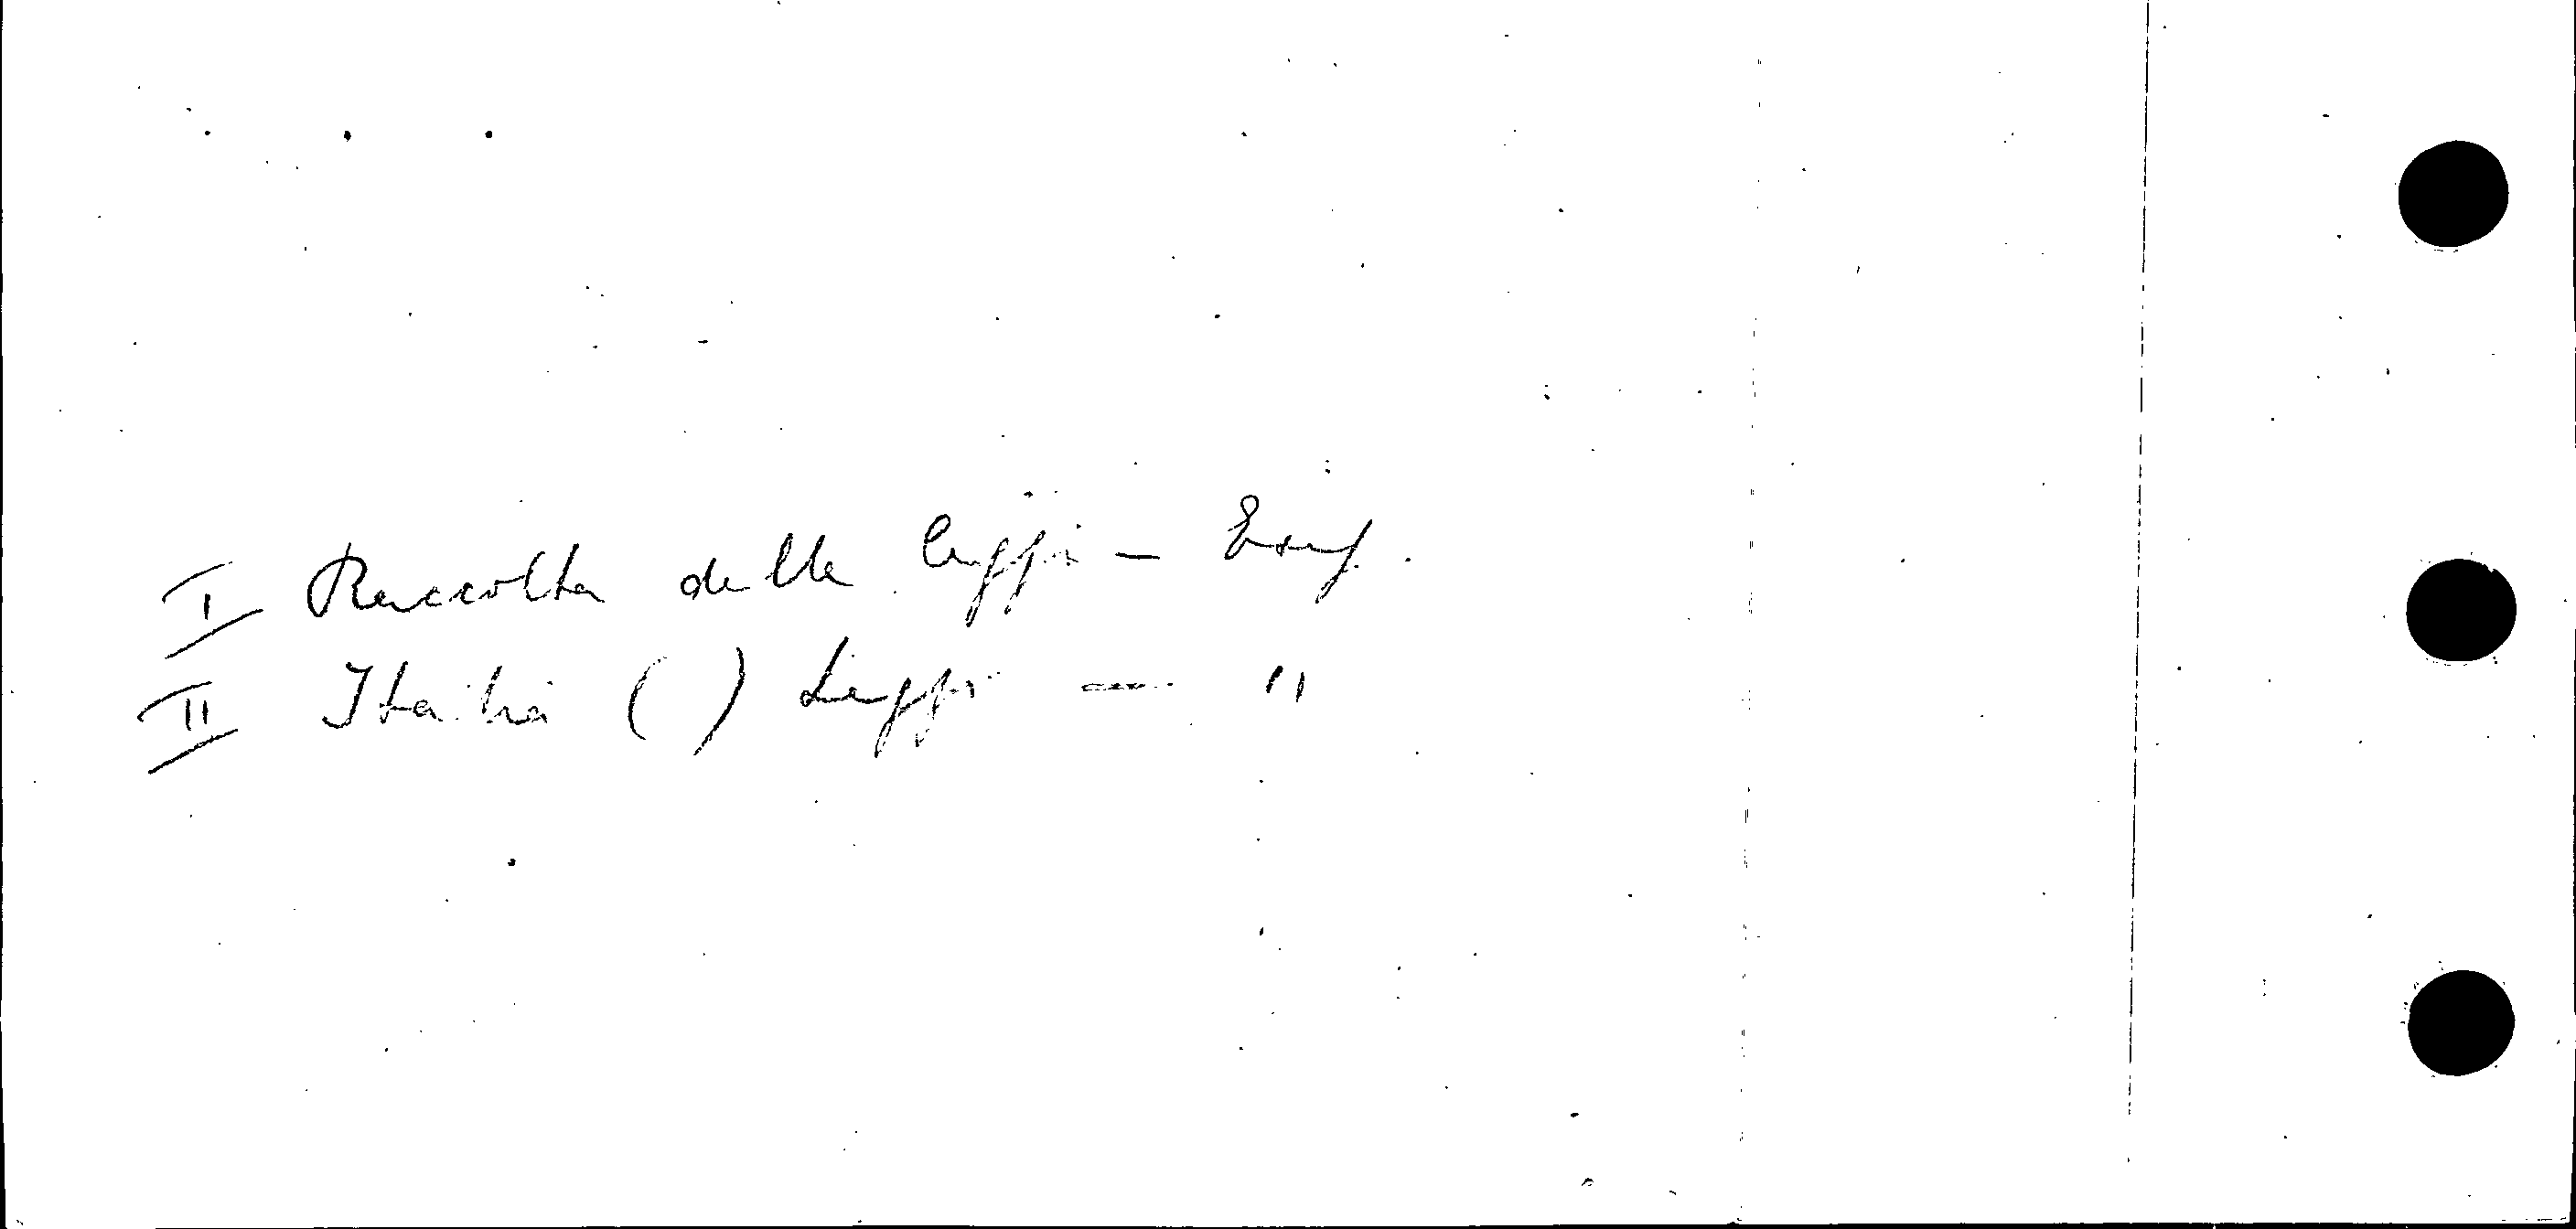 I Raccolta delle leggi -
II Italia ( ) Leggi — "